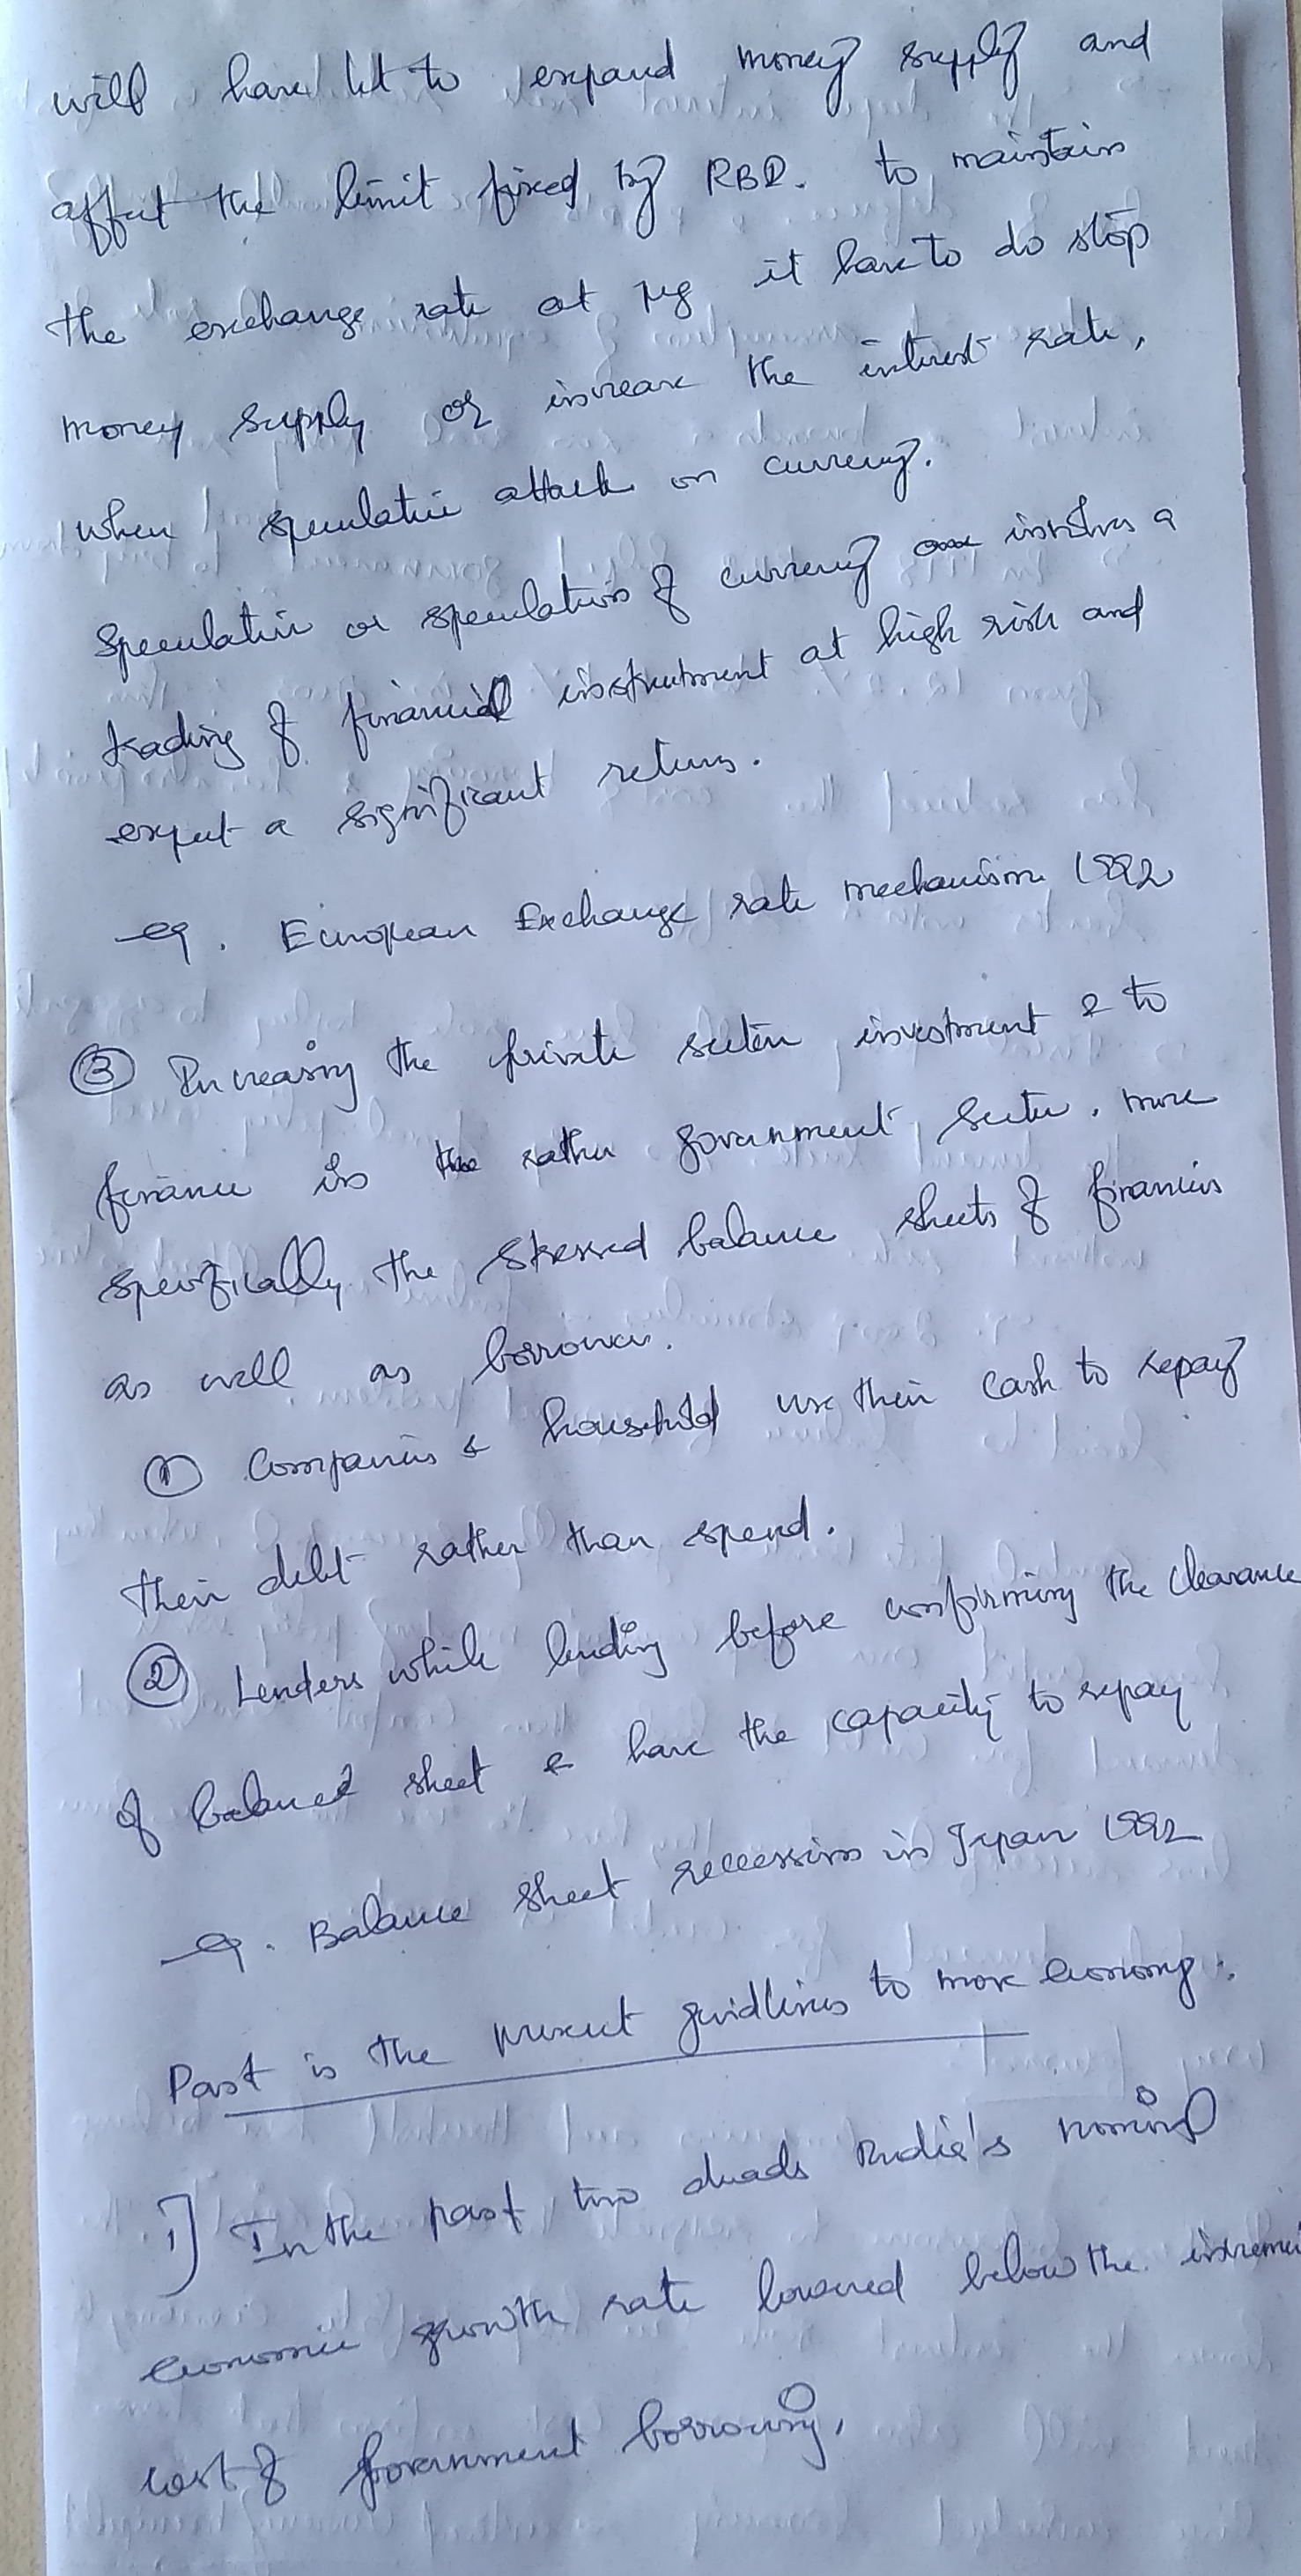 will have let to expand money supply and
affect the limit fixed by RBI. to maintain
the exchange rate at it have to do stop
money supply or increase the interest rate,
when speculative attack on currency.
Speculative or speculation of currency involves a
trading of financial instrument at high risk and
expect a significant return.
eg. European Exchange rate mechanism 1992
③ Increasing the private sector investment & to
finance is rather government sector. more
specifically the stressed balance sheets of
as well as borrower.
① Companies & household use their cash to repay
their debt rather than spend.
② Lenders while lending before confirming the clearance
of balance sheet & have the capacity to repay
eg. Balance sheet recession in Japan 1992
Past is the present guidlines to move economy.
1] In the past two decads India's nominal
economic growth rate lowered below the
cost of government borrowing,